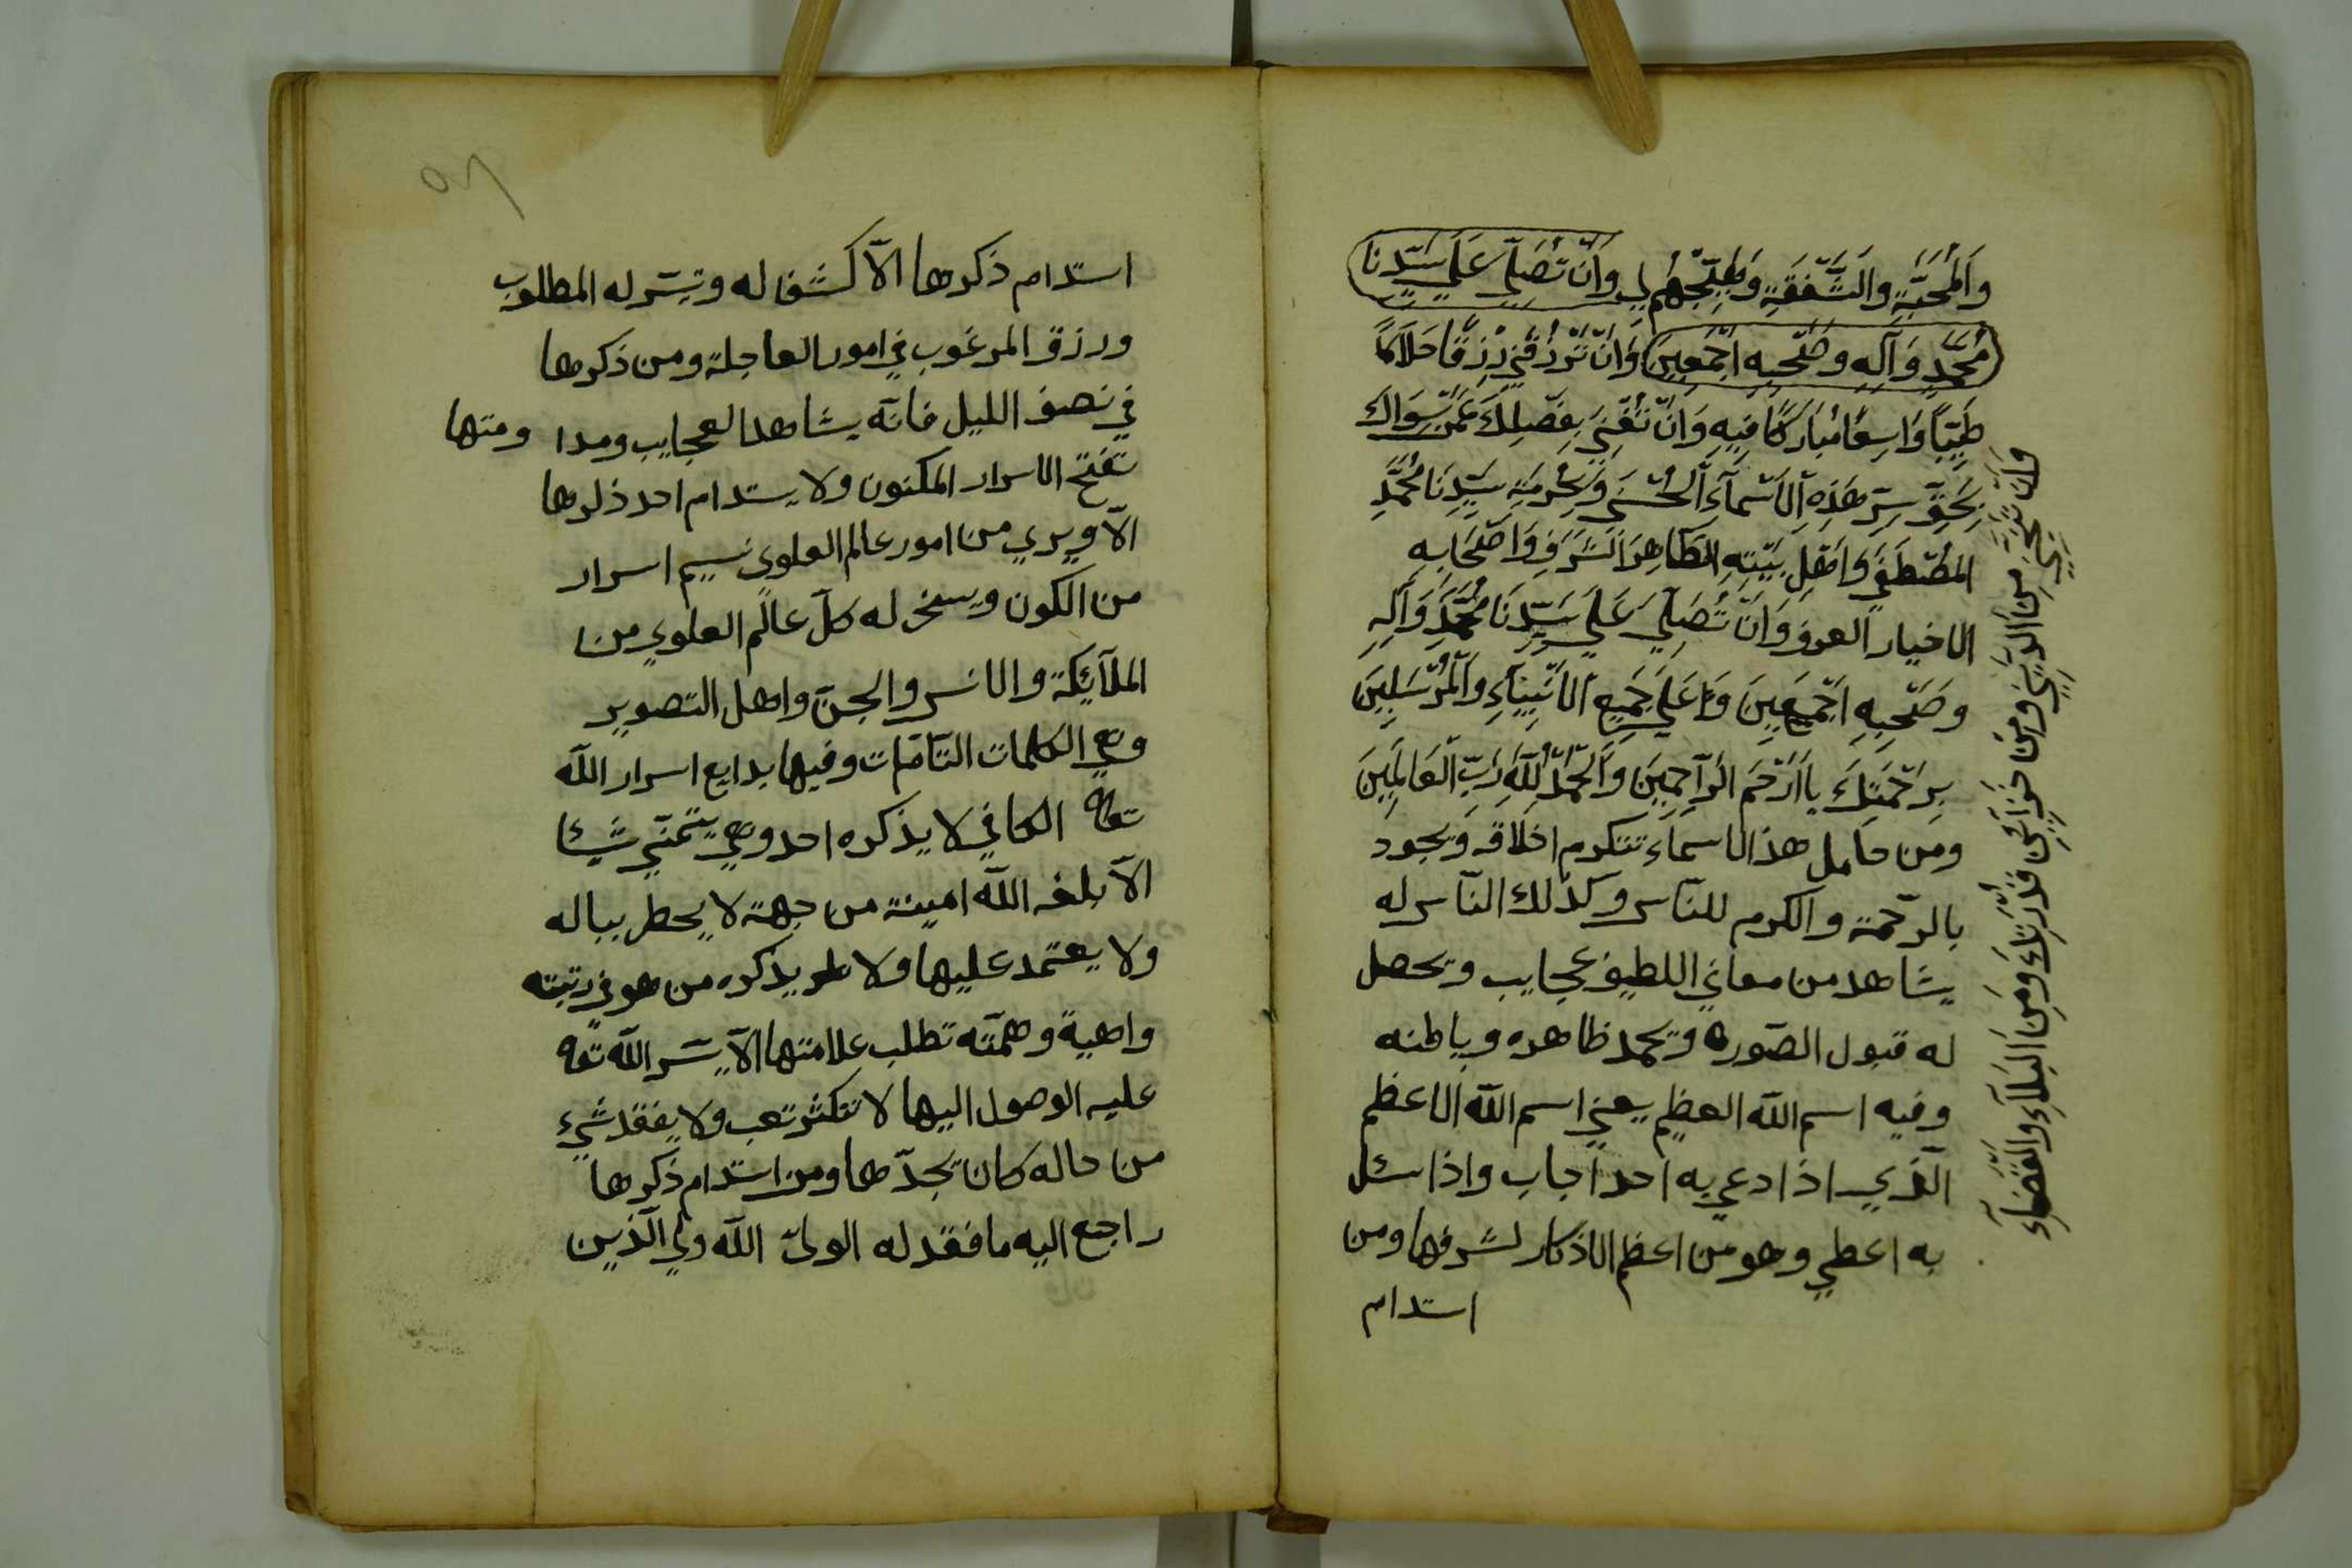 وَالْمَحَبَّةِ وَالشَّفَقَةِ وَطِيعُهُمْ لِي وَاَنْ تُصَلِّيَ عَلَي سَيِّدِنَا
مُحَمَّدٍ وَآلِهِ وَصَحْبِهِ اَجْمَعِينَ وَاَنْ تَرْزُقَنِي رِزْقًا حَلَالًا
طَيِّبًا وَاسِعًا مُبَارَكًا فِيهِ وَاَنْ تُغْنِيَنِي بِفَضْلِكَ عَمَّنْ سِوَاكَ
بِحَقِّ سِرِّ هَذِهِ الْاَسْمَآءِ الْحُسْنَي وَبِحُرْمَةِ سَيِّدِنَا مُحَمَّدٍ
الْمُصْطَفَي وَاَهْلِ بَيْتِهِ الطَّاهِرِ الشَّرَفِ وَاَصْحَابِهِ
الاخيار العرف وَاَنْ تُصَلِّيَ عَلَي سَيِّدِنَا مُحَمَّدٍ وَآلِهِ
وَصَحْبِهِ اَجْمَعِينَ وَعَلَي جَمِيعِ الْاَنْبِيَآءِ وَالْمُرْسَلِينَ
بِرَحْمَتِكَ يَا اَرْحَمَ الرَّاحِمِينَ وَالْحَمْدُ لِلَّهِ رَبِّ الْعَالَمِينَ
ومن حامل هذا الاسماء تتكرم اخلاقه ويجود
بالرّحمة والكرم للنّاس وكذلك النّاس له
يشاهد من معاني اللطيف عجايب وتحصل
له قبول الصّوره ويحمد ظاهره وباطنه
وفيه اسم الله العظيم يعني اسم الله الاعظم
الّذي اذا دعي به احد اجاب واذا سئل
به اعطي وهو من اعظم الاذكار لشرفها ومن
استدام
مِنَ الدَّيْنِ وَمِنْ خَزَآئِنِ قُدْرَتِكَ وَمِنَ الْبَلَآءِ وَالْقَضَآءِ
٢٥
استدام ذكرها الّا كشفا له وتيسّر له المطلوب
ورزق المرغوب في امور العاجلة ومن ذكرها
في نصف الليل فانّه يشاهد العجايب ومدا ومتها
تفتح الاسرار المكنون ولا يستدام احد ذكرها
الّا ويري من امور عالم العلوى نسيم اسرار
من الكون ويسخر له كلّ عالم العلوي من
الملآئكة والانس والجنّ واهل التصوير
وهي الكلمات التّامّات وفيها بدايع اسرار الله
تعالى الكافي لا يذكره احد وهي يتمنّي شيئا
الّا بلغه الله امينة من جهة لا يحطر بباله
ولا يعتمد عليها ولا يذكره من هو في رتبته
واهية وهمّته تطلب علامتها الّا يسّر الله تعالى
عليه الوصول اليها لا تكثر تعب ولا يفقد شيء
من حاله كان تجدّها ومن استدام ذكرها
راجع اليه ما فقد له الولىّ الله ولي الّذين